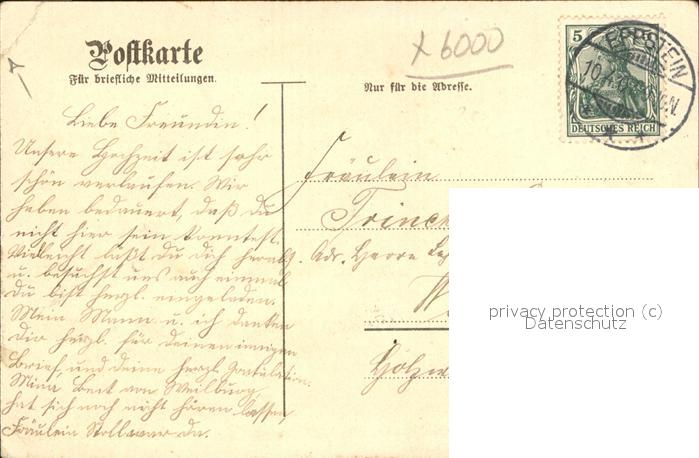 Postkarte
Für briefliche Mitteilungen.
x 6000
Nur für die Adresse.
5
EPPSTEIN
DEUTSCHES REICH
Liebe Freundin!
Unsere Hochzeit ist sehr
schön verlaufen. Wir
haben bedauert, daß du
nicht hier sein konntest.
Vielleicht läßt du dich herab
u. besuchst uns auch einmal
Du bist herzl. eingeladen.
Mein Mann u. ich danken
Dir herzl. für deinen innigen
Brief, und deine herzl. Gratulation.
Mina Best von Weilburg
hat sich noch nicht hören lassen,
Fräulein da.
Fräulein
Trinch
Adr. Herrn
W
Holzw
privacy protection (c)
Datenschutz